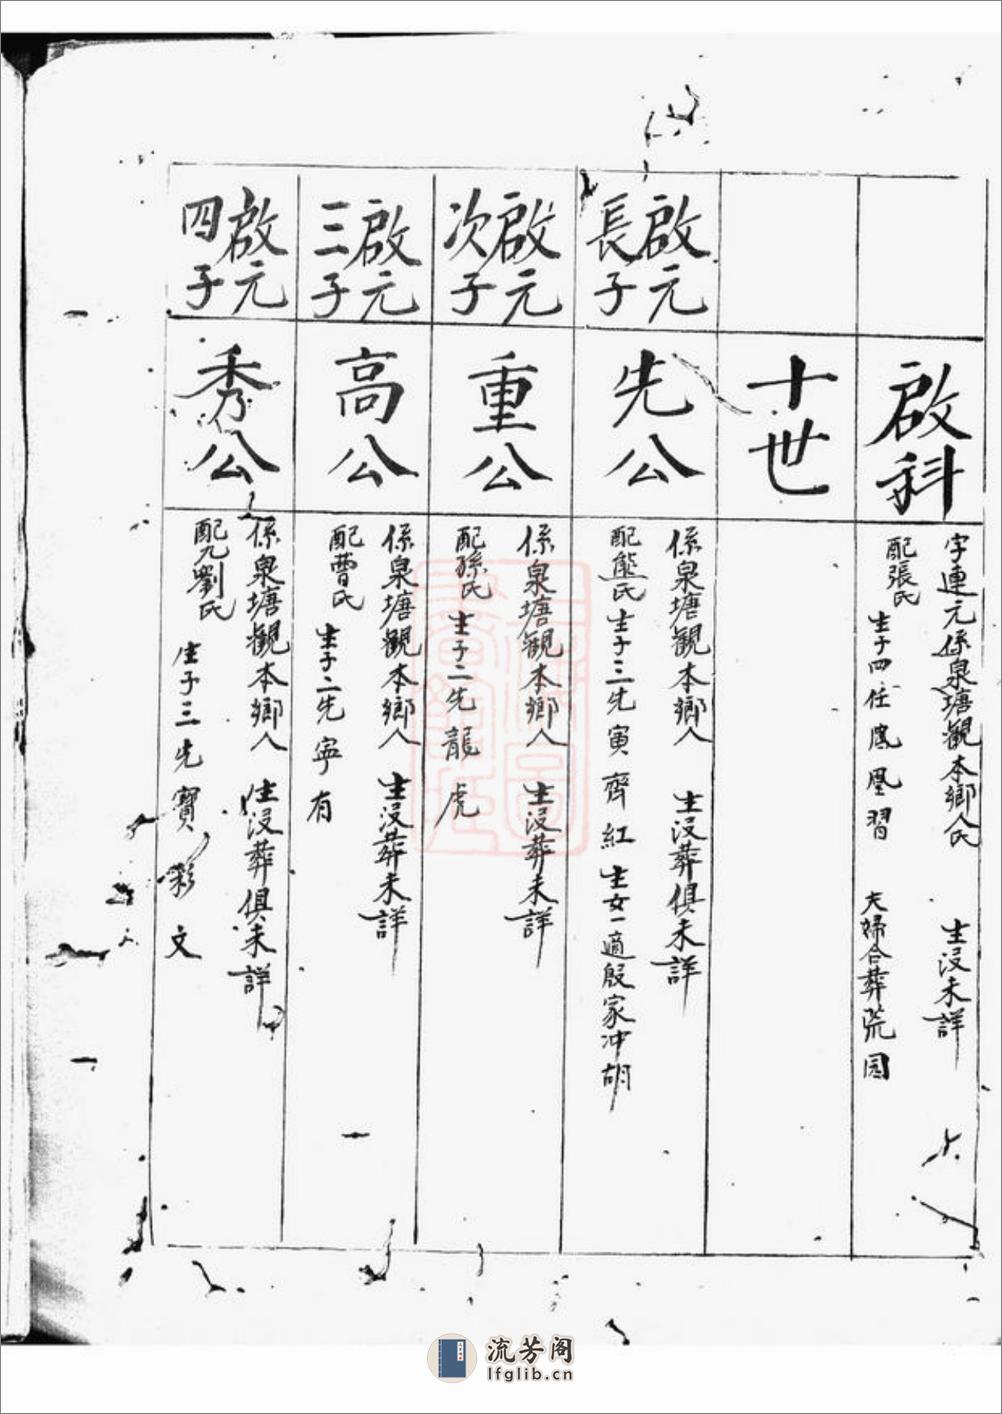 啟科
字連元係泉塘觀本鄉人氏 生没未詳
配張氏 生子四任鳳凰習 夫婦合葬荒园
十世
啟元
長子
先公
係泉塘觀本鄉人 生没葬俱未詳
配熊氏 生子三先寅齊紅 生女一適殷家冲胡
啟元
次子
重公
係泉塘觀本鄉人 生没葬未詳
配孫氏 生子二先龍虎
啟元
三子
高公
係泉塘觀本鄉人 生没葬未詳
配曹氏 生子二先寧有
啟元
四子
秀公
係泉塘觀本鄉人 生没葬俱未詳
配劉氏 生子三先寶彩文
流芳阁
lfglib.cn